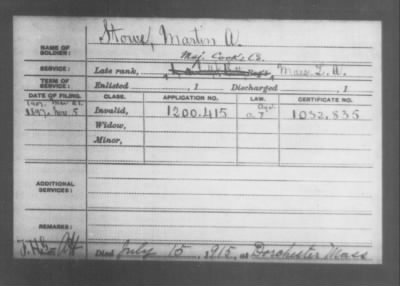 NAME OF SOLDIER: Stowe, Martin A.
Maj. Cook's Co.
SERVICE: Late rank, Mass. L. A.
TERM OF SERVICE: Enlisted , 1 Discharged , 1
DATE OF FILING. CLASS. APPLICATION NO. LAW. CERTIFICATE NO.
1897, Nov. 5 Invalid, 1200.415 1032,835
Widow,
Minor,
ADDITIONAL SERVICES:
REMARKS:
Died July 15, 1915, at Dorchester Mass